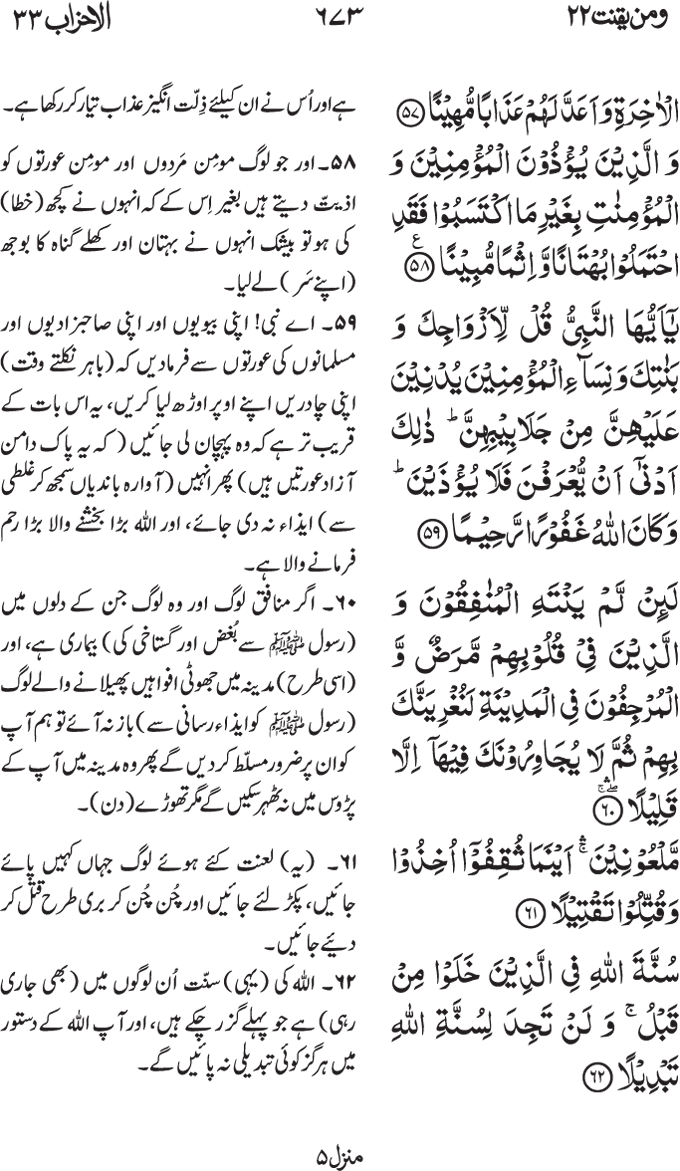 ومن یقنت ۲۲
۶۷۳
الاحزاب ۳۳
الْاٰخِرَةِ وَ اَعَدَّ لَهُمْ عَذَابًا مُّهِيْنًا ۝۵۷
وَ الَّذِيْنَ يُؤْذُوْنَ الْمُؤْمِنِيْنَ وَ
الْمُؤْمِنٰتِ بِغَيْرِ مَا اكْتَسَبُوْا فَقَدِ
احْتَمَلُوْا بُهْتَانًا وَّ اِثْمًا مُّبِيْنًا ۝۵۸ ع
يٰۤاَيُّهَا النَّبِيُّ قُلْ لِّاَزْوَاجِكَ وَ
بَنٰتِكَ وَ نِسَآءِ الْمُؤْمِنِيْنَ يُدْنِيْنَ
عَلَيْهِنَّ مِنْ جَلَابِيْبِهِنَّ ؕ ذٰلِكَ
اَدْنٰۤى اَنْ يُّعْرَفْنَ فَلَا يُؤْذَيْنَ ؕ
وَ كَانَ اللّٰهُ غَفُوْرًا رَّحِيْمًا ۝۵۹
لَىِٕنْ لَّمْ يَنْتَهِ الْمُنٰفِقُوْنَ وَ
الَّذِيْنَ فِيْ قُلُوْبِهِمْ مَّرَضٌ وَّ
الْمُرْجِفُوْنَ فِي الْمَدِيْنَةِ لَنُغْرِيَنَّكَ
بِهِمْ ثُمَّ لَا يُجَاوِرُوْنَكَ فِيْهَاۤ اِلَّا
قَلِيْلًا ۝۶۰
مَّلْعُوْنِيْنَ ۛۚ اَيْنَمَا ثُقِفُوْۤا اُخِذُوْا
وَ قُتِّلُوْا تَقْتِيْلًا ۝۶۱
سُنَّةَ اللّٰهِ فِي الَّذِيْنَ خَلَوْا مِنْ
قَبْلُ ۚ وَ لَنْ تَجِدَ لِسُنَّةِ اللّٰهِ
تَبْدِيْلًا ۝۶۲
ہے اور اُس نے ان کیلئے ذِلّت انگیز عذاب تیار کر رکھا ہے۔
۵۸۔ اور جو لوگ مومِن مَردوں اور مومِن عورتوں کو
اذیتّ دیتے ہیں بغیر اِس کے کہ انہوں نے کچھ (خطا)
کی ہو تو بیشک انہوں نے بہتان اور کھلے گناہ کا بوجھ
(اپنے سَر) لے لیا۔
۵۹۔ اے نبی! اپنی بیویوں اور اپنی صاحبزادیوں اور
مسلمانوں کی عورتوں سے فرما دیں کہ (باہر نکلتے وقت)
اپنی چادریں اپنے اوپر اوڑھ لیا کریں، یہ اس بات کے
قریب تر ہے کہ وہ پہچان لی جائیں (کہ یہ پاک دامن
آزاد عورتیں ہیں) پھر انہیں (آوارہ باندیاں سمجھ کر غلطی
سے) ایذاء نہ دی جائے، اور اللہ بڑا بخشنے والا بڑا رحم
فرمانے والا ہے۔
۶۰۔ اگر منافق لوگ اور وہ لوگ جن کے دلوں میں
(رسول ﷺ سے بُغض اور گستاخی کی) بیماری ہے، اور
(اسی طرح) مدینہ میں جھوٹی افواہیں پھیلانے والے لوگ
(رسول ﷺ کو ایذاء رسانی سے) باز نہ آئے تو ہم آپ
کو ان پر ضرور مسلّط کر دیں گے پھر وہ مدینہ میں آپ کے
پڑوس میں نہ ٹھہر سکیں گے مگر تھوڑے (دن)۔
۶۱۔ (یہ) لعنت کئے ہوئے لوگ جہاں کہیں پائے
جائیں، پکڑ لئے جائیں اور چُن چُن کر بری طرح قتل کر
دیئے جائیں۔
۶۲۔ اللہ کی (یہی) سنّت اُن لوگوں میں (بھی جاری
رہی) ہے جو پہلے گزر چکے ہیں، اور آپ اللہ کے دستور
میں ہرگز کوئی تبدیلی نہ پائیں گے۔
منزل ۵